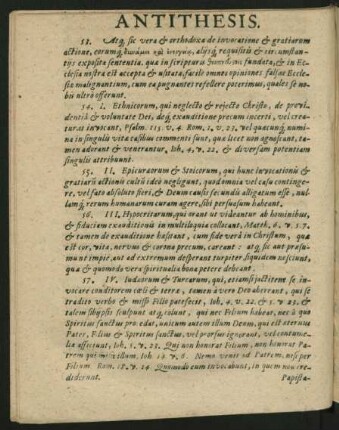 ANTITHESIS.
53. Atq; sic vera & orthodoxa de invocatione & gratiarum
actione, eorumq; requisitis & circumstan-
tijs exposita sententia, qua in scripturis fundata, & in Ec-
clesia nostra est accepta & usitata, facile omnes opiniones falsae Eccle-
siae malignantium, cum ea pugnantes refellere poterimus, quales se no-
bis ultro offerunt.
54. I. Ethnicorum, qui neglecto & rejecto Christo, de provi-
dentia & voluntate Dei, deq; exauditione precum incerti, vel crea-
turas invocant, Psalm. 115. v. 4. Rom. 1. v. 23. vel quacunq; numi-
na in singulis vitae casibus commenti sunt, qua licet non agnoscant, ta-
men adorant & venerantur, Ioh. 4. v. 22. & diversam potentiam
singulis attribuunt.
55. II. Epicureorum & Stoicorum, qui hunc invocationis &
gratiarum actionis cultum ideo negligunt, quod omnia vel casu continge-
re, vel fato absoluto fieri, & Deum causis secundis alligatum esse, nul-
lamq; rerum humanarum curam agere, sibi persuasum habeant.
56. III. Hypocritarum, qui orant ut videantur ab hominibus,
& fiduciam exauditionis in multiloquio collocant, Matth. 6. v. 5. 7.
& tamen de exauditione haesitant, cum fide vera in Christum, quae
est cor, vita, nervus & corona precum, careant: atq; sic aut praesu-
munt impie, aut ad extremum desperant turpiter, siquidem nesciunt,
qua & quomodo vera spiritualia bona petere debeant.
57. IV. Iudaeorum & Turcarum, qui, etiamsi jactitent se in-
vocare conditorem coeli & terrae, tamen à vero Deo aberrant, qui se
tradito verbo & misso Filio patefecit, Ioh. 4. v. 22. & 5. v. 23. &
talem sibi ipsis sculpunt atq; volunt, qui nec Filium habeat, nec à quo
Spiritus sanctus procedat, unicum autem illum Deum, qui est aeternus
Pater, Filius & Spiritus sanctus, vel prorsus ignorant, vel contume-
lia afficiunt, Ioh. 5. v. 23. Qui non honorat Filium, non honorat Pa-
trem qui misit illum. Ioh. 14. v. 6. Nemo venit ad Patrem, nisi per
Filium Rom. v. 14. Quomodo eum invocabunt, in quem non cre-
diderunt.
Papista-